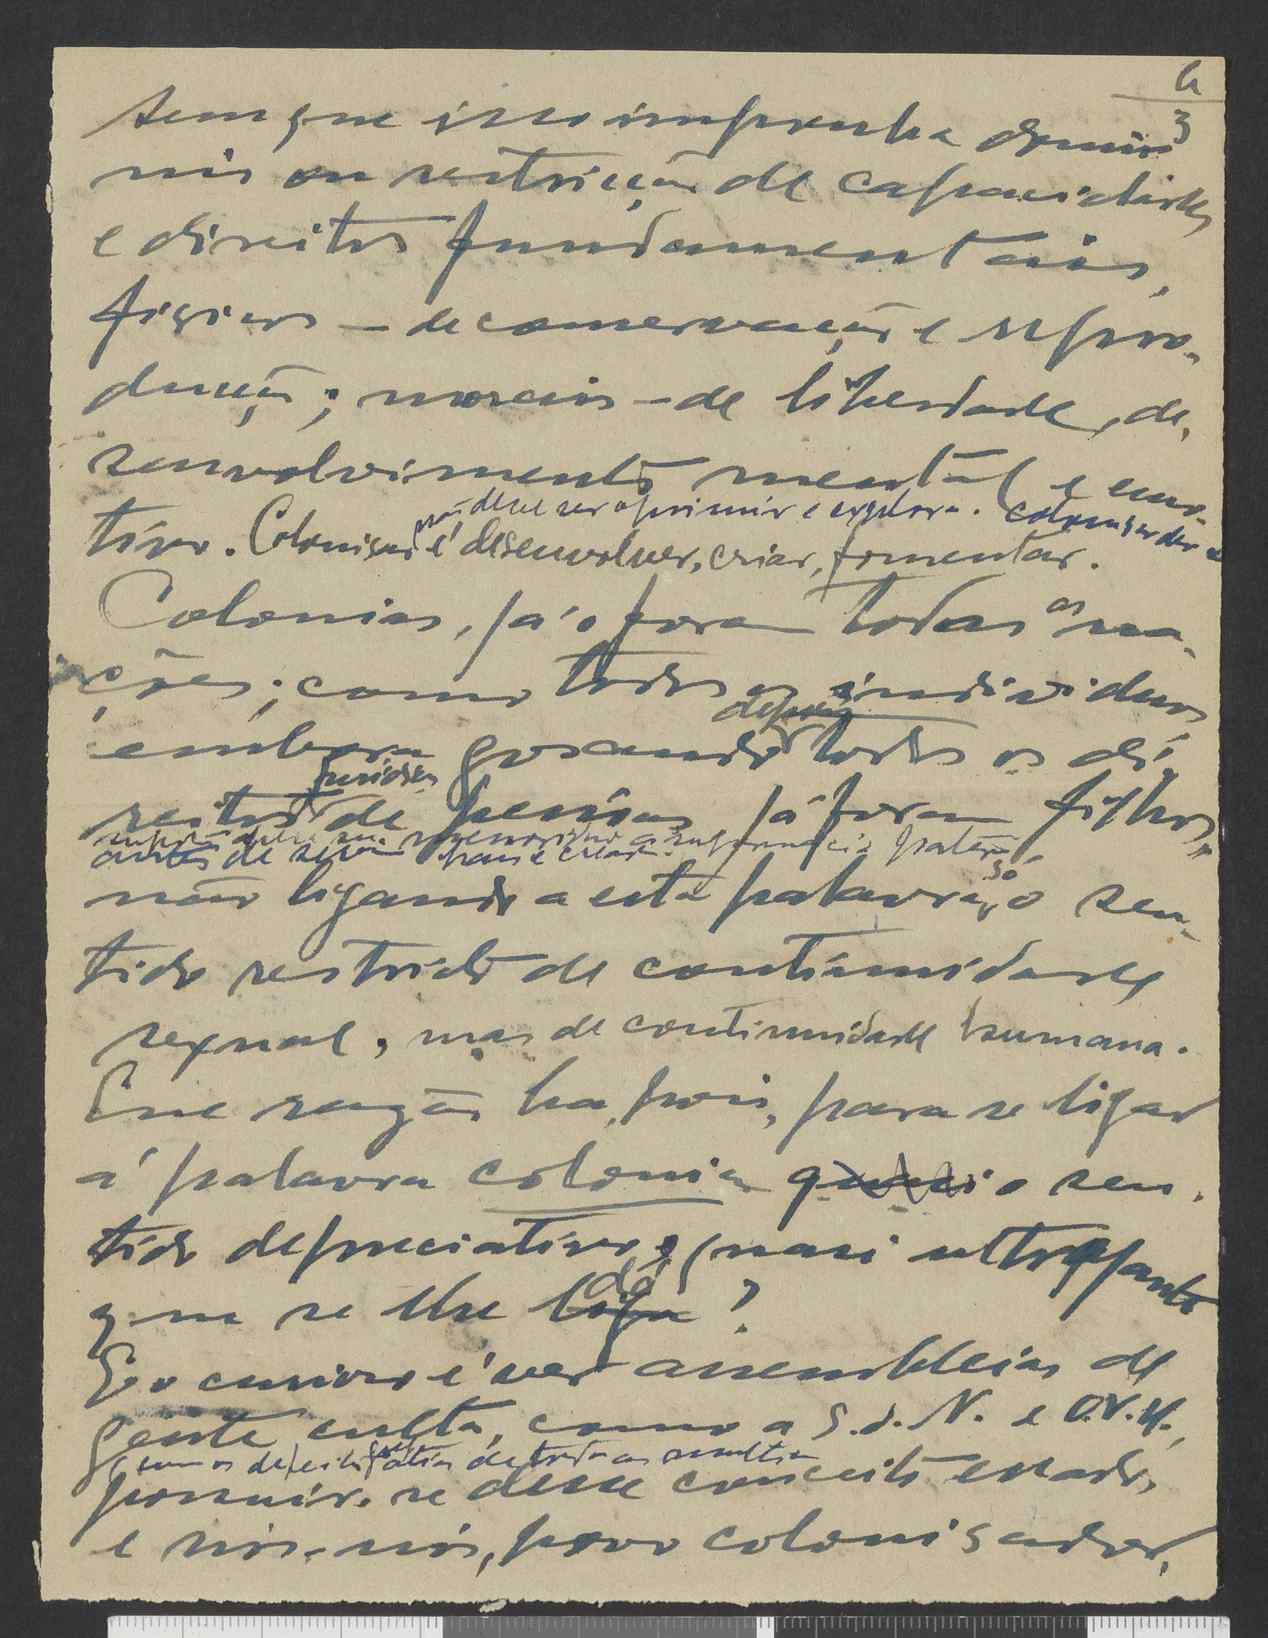 6
3
sem que isso imponha domi-
nio ou restricção de capacidades
e direitos fundamentais,
fisicos — de conservação e repro-
ducção; moraes — de liberdade, de-
senvolvimento mental e emo-
não deve ser oprimir e explorar. Colonisar deve
tivo. Colonisar é desenvolver, criar, fomentar.
Colonias, já o foram todas as na-
ções; como todos os individuos
depois
embora gosando todos os di-
juridicos
reitos de pessoas já foram filhos,
antes de serem paes e crear.
não ligando a esta palavra, só o sen-
tido restricto de continuidade
sexual, mas de continuidade humana.
Que razão ha, pois, para se ligar
á palavra colonia o sen-
tido depreciativo, quasi ultrajante
que se lhe dá?
E o curioso é ver assembleias de
gente culta, como a S. d. N. e O.N.U.,
possuir-se desse conceito errado,
e nós, nós, povo colonisador,